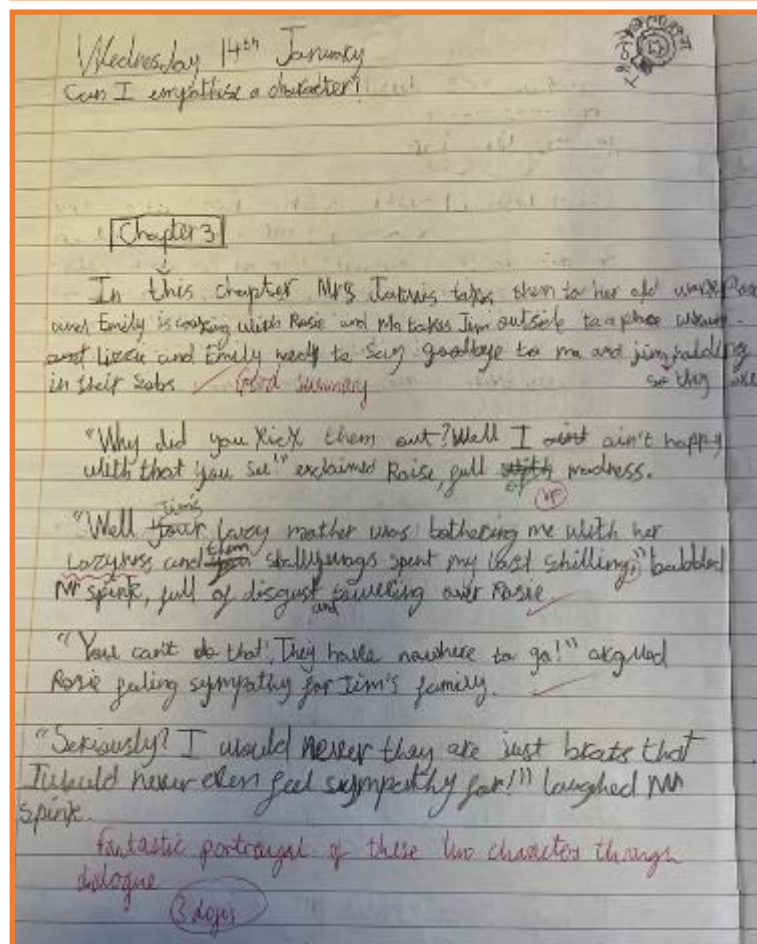 Wednesday 14th January
Can I empathise a character?
Chapter 3
In this chapter Mrs Jarvis takes them to her old
and Emily is working with Rosie and Ma takes Jim outside to a place
and Lizzie and Emily need to say goodbye to ma and jim
in their sobs Good summary so they are
"Why did you kick them out? Well I aint ain't happy
with that you see!" exclaimed Raise, full with of madness.
"Well your Jim's lazy mother was bothering me with her
Lazyness and them skallywags spent my last shilling," babbled
Mr spink, full of disgust and towering over Rosie
"You can't do that, They have nowhere to go!" argued
Rosie feeling sympathy for Jim's family.
"Seriously? I would never they are just brats that
I would never even feel sympathy for!" laughed Mr
spink.
Fantastic portrayal of these two characters through
dialogue
3 dojos